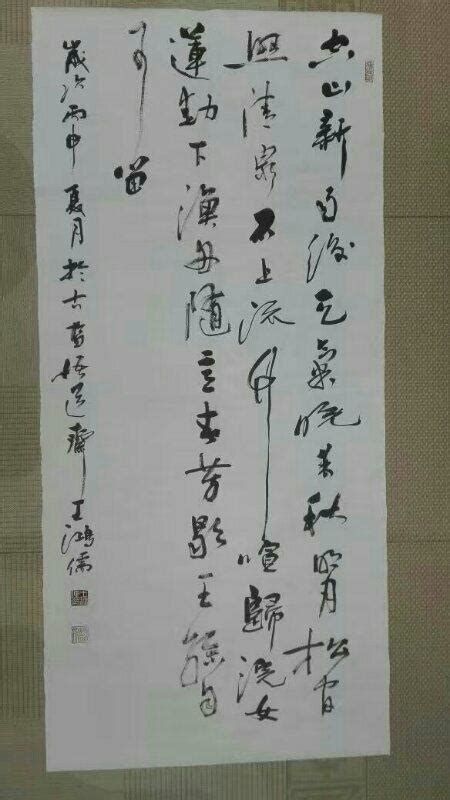 空山新雨後天氣晚来秋明月松間
照清泉石上流竹喧歸浣女
蓮動下漁舟隨意春芳歇王孫自
可留
歲次丙申夏月於古悟道齋王鴻儒